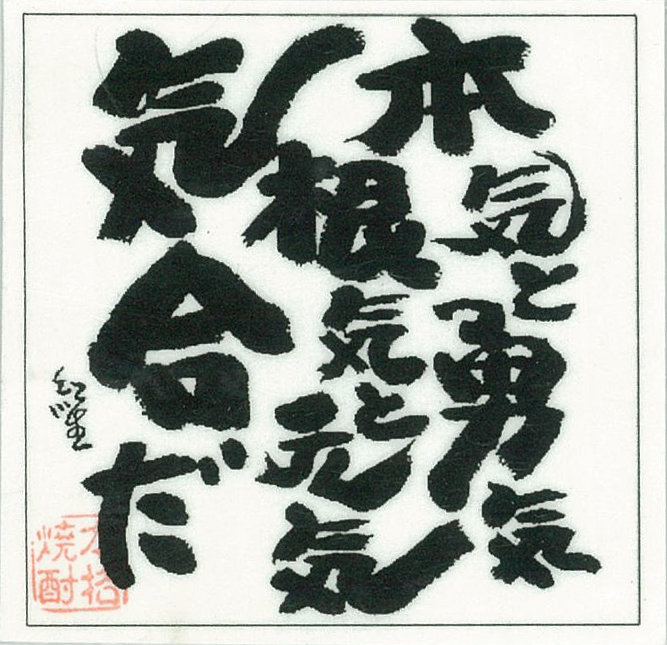 本気と勇気
根気と元気
気合だ
本格
焼酎